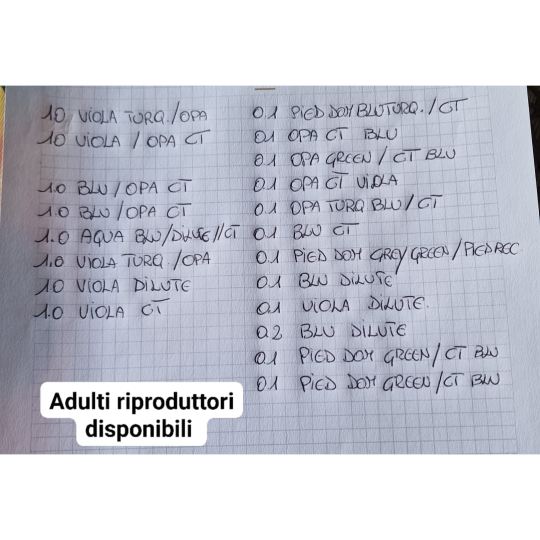 1.0 VIOLA TURQ./OPA
1.0 VIOLA / OPA CT
1.0 BLU/OPA CT
1.0 BLU/OPA CT
1.0 AQUA BLU/DILUTE//CT
1.0 VIOLA TURQ /OPA
1.0 VIOLA DILUTE
1.0 VIOLA CT
0.1 PIED DOM BLUTURQ./CT
0.1 OPA CT BLU
0.1 OPA GREEN / CT BLU
0.1 OPA CT VIOLA
0.1 OPA TURQ BLU/CT
0.1 BLU CT
0.1 PIED DOM GREY GREEN/PIEDREC
0.1 BLU DILUTE
0.1 VIOLA DILUTE.
0.2 BLU DILUTE
0.1 PIED DOM GREEN/CT BLU
0.1 PIED DOM GREEN/CT BLU
Adulti riproduttori
disponibili